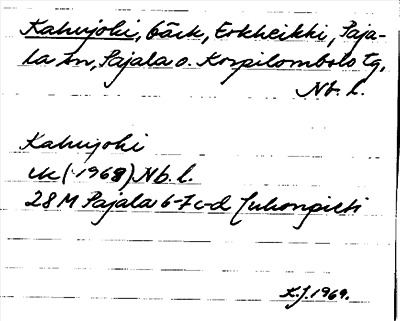 Kahujoki, bäck, Erkheikki, Paja-
la sn, Pajala o. Korpilombolo tg,
Nb. l.
Kahujoki
ek (1968) Nb. l.
28 M Pajala 6-7 c-d Juhonpieti
K.J. 1969.